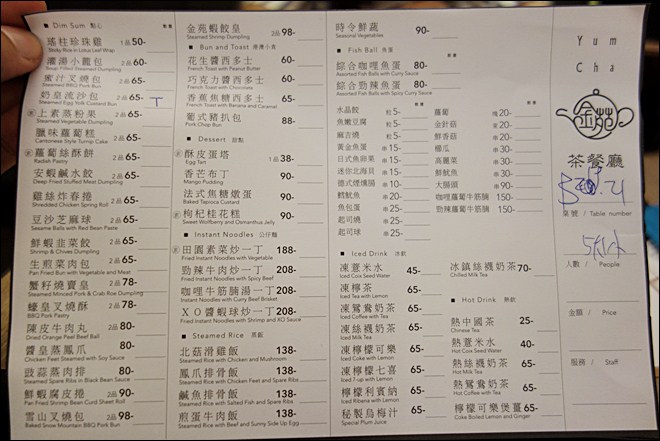 Dim Sum 點心
瑤柱珍珠雞 1品 50-
Sticky Rice in Lotus Leaf Wrap
灌湯小籠包 60-
Soup Filled Steamed Dumpling
蜜汁叉燒包 2品 65-
Steamed BBQ Pork Bun
奶皇流沙包 2品 65-
Steamed Egg Yolk Custard Bun
上素蒸粉果 2品 65-
Steamed Vegetable Dumpling
臘味蘿蔔糕 2品 65-
Cantonese Style Turnip Cake
蘿蔔絲酥餅 2品 65-
Radish Pastry
安蝦鹹水餃 2品 65-
Deep Fried Stuffed Meat Dumpling
雞絲炸春捲 2品 65-
Shredded Chicken Spring Roll
豆沙芝麻球 2品 65-
Sesame Balls with Red Bean Paste
鮮蝦韭菜餃 2品 65-
Shrimp & Chives Dumpling
生煎菜肉包 2品 65-
Pan Fried Bun with Vegetable and Meat
蟹籽燒賣皇 2品 78-
Steamed Minced Pork & Crab Roe Dumpling
蠔皇叉燒酥 2品 78-
BBQ Pork Pastry
陳皮牛肉丸 2品 80-
Dried Orange Peel Beef Ball
醬皇蒸鳳爪 80-
Chicken Feet Steamed with Soy Sauce
豉蒜蒸肉排 80-
Steamed Spare Ribs in Black Bean Sauce
鮮蝦腐皮捲 2品 90-
Pan Fried Shrimp Bean Curd Sheet Roll
雪山叉燒包 2品 98-
Baked Snow Mountain BBQ Pork Bun
金苑蝦餃皇 2品 98-
Steamed Shrimp Dumpling
Bun and Toast
花生醬西多士 60-
French Toast with Peanut Butter
巧克力醬西多士 60-
French Toast with Chocolate
香蕉焦糖西多士 65-
French Toast with Banana and Caramel
葡式豬扒包 88-
Pork Chop Bun
Dessert 甜點
酥皮蛋塔 1品 38-
Egg Tart
香芒布丁 90-
Mango Pudding
法式焦糖燉蛋 90-
Baked Tapioca Custard
枸杞桂花糕 90-
Sweet Wolfberry and Osmanthus Jelly
Instant Noodles 公仔麵
田園素菜炒一丁 188-
Fried Instant Noodles with Vegetable
勁辣牛肉炒一丁 208-
Fried Instant Noodles with Spicy Beef
咖哩牛筋腩湯一丁 208-
Instant Noodles with Curry Beef Brisket
XO醬蝦球炒一丁 208-
Fried Instant Noodles with Shrimp and XO Sauce
Steamed Rice 蒸飯
北菇滑雞飯 138-
Steamed Rice with Chicken and Mushroom
鳳爪排骨飯 138-
Steamed Rice with Chicken Feet and Spare Ribs
鹹魚排骨飯 138-
Steamed Rice with Salted Fish and Spare Ribs
煎蛋牛肉飯 138-
Steamed Rice with Beef and Sunny Side Up Egg
時令鮮蔬 90-
Seasonal Vegetables
Fish Ball 魚蛋
綜合咖哩魚蛋 80-
Assorted Fish Balls with Curry Sauce
綜合勁辣魚蛋 80-
Assorted Fish Balls with Spicy Curry Sauce
水晶餃 粒 5-
魚嫩豆腐 粒 5-
扁吉燒 粒 5-
黃金魚蛋 串 15-
日式魚卵棒 串 15-
迷你北海貝 串 15-
德式煙燻腸 串 10-
鱈魚魷 串 20-
魚包蛋 串 25-
起司燒 串 25-
起司球 串 25-
蘿蔔 塊 20-
金針菇 串 20-
鮮香菇 串 20-
櫛瓜 串 30-
高麗菜 串 30-
鮮魷魚 串 30-
大腸頭 串 90-
咖哩蘿蔔牛筋腩 150-
勁辣蘿蔔牛筋腩 150-
Iced Drink 冷飲
凍薏米水 45-
Iced Coix Seed Water
凍檸茶 65-
Iced Tea with Lemon
凍鴛鴦奶茶 65-
Iced Coffee with Tea
凍絲襪奶茶 65-
Iced Milk Tea
凍檸檬可樂 65-
Iced Coke with Lemon
凍檸檬七喜 65-
Iced 7-up with Lemon
凍檸檬利賓納 65-
Iced Ribena with Lemon
秘製烏梅汁 65-
Special Plum Juice
冰鎮絲襪奶茶 70-
Chilled Milk Tea
Hot Drink 熱飲
熱中國茶 25-
Chinese Tea
熱薏米水 40-
Hot Coix Seed Water
熱絲襪奶茶 65-
Hot Milk Tea
熱鴛鴦奶茶 65-
Hot Coffee with Tea
檸檬可樂煲薑 65-
Coke Boiled Lemon and Ginger
Yum
Cha
金苑
茶餐廳
桌號 / Table number
人數 / People
金額 / Price
服務 / Staff